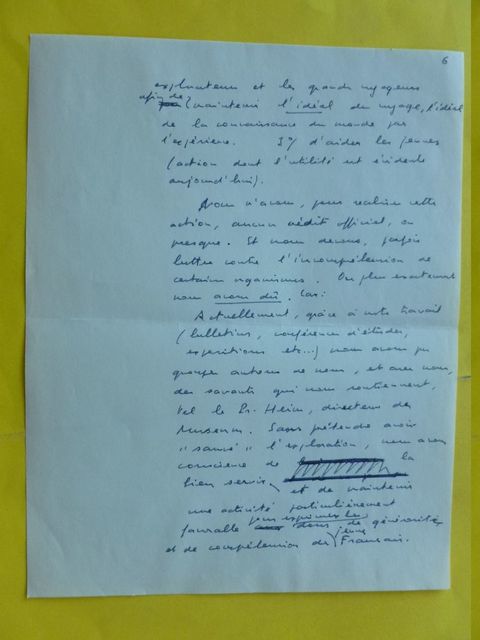 6
explorateurs et les grands voyageurs
afin de maintenir l'idéal du voyage, l'idéal
de la connaissance du monde par
l'expérience. 3°/ d'aider les jeunes
(action dont l'utilité est évidente
aujourd'hui).
Nous n'avons, pour réaliser cette
action, aucun crédit officiel, ou
presque. Et nous devons, parfois
lutter contre l'incompréhension de
certains organismes. Ou plus exactement
nous avons dû. Car:
Actuellement, grâce à notre travail
(bulletins, conférences d'études,
expositions etc...) nous avons pu
grouper autour de nous, et avec nous,
des savants qui nous soutiennent,
tel le Pr. Heim, directeur du
Museum. Sans prétendre avoir
"sauvé" l'exploration, nous avons
conscience de la
bien servir, et de maintenir
une activité particulièrement
favorable pour exprimer les dons de générosité
et de compréhension des jeunes Français.